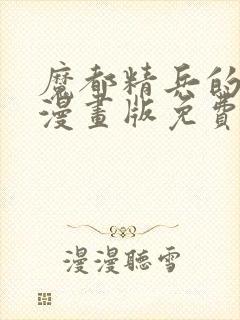 魔都精兵的
漫畫版免費
漫漫聽雪